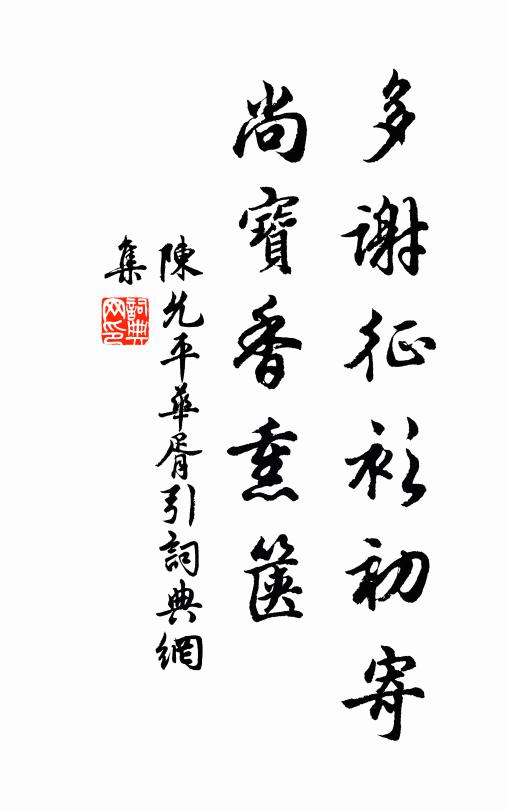 多謝征衫初寄
尚寶香熏篋
陳允平華胥引詞典網
集
詞典網印